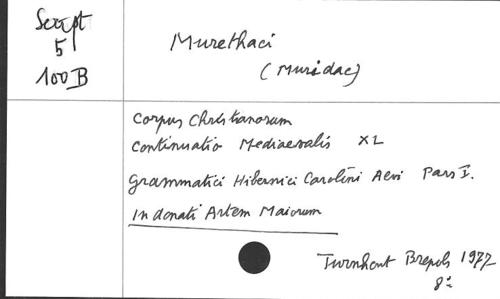 Script
5
100B
Murethaci
(Muridac)
Corpus Christianorum
Continuatio Mediaevalis XL
Grammatici Hibernici Carolini Aevi Pars I.
In Donati Artem Maiorum
Turnhout Brepols 1977
8º